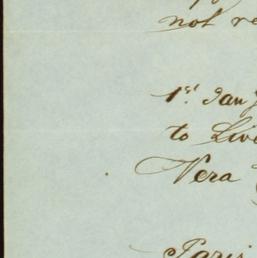 not re
1st Jan
to Live
Vera
Paris